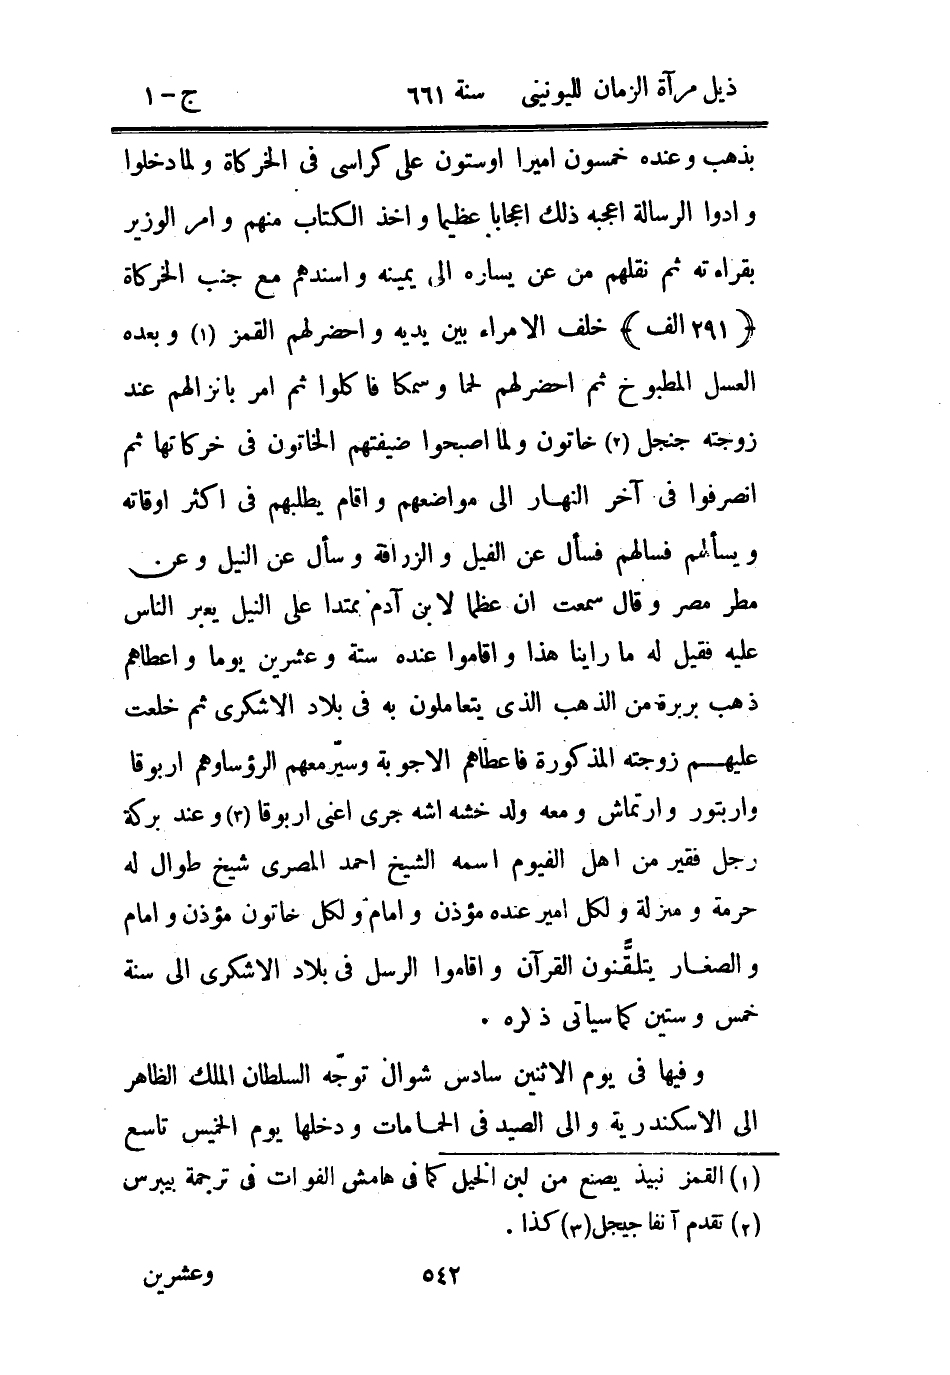 ذيل مرآة الزمان لليونينى سنة ٦٦١ ج-١
بذهب وعنده خمسون اميرا اوستون على كراسى فى الخركاة ولما دخلوا
وادوا الرسالة اعجبه ذلك اعجابا عظيما واخذ الكتاب منهم وامر الوزير
بقراءته ثم نقلهم من عن يساره الى يمينه واسندهم مع جنب الخركاة
﴿ ٢٩١ الف ﴾ خلف الامراء بين يديه واحضرلهم القمز (١) وبعده
العسل المطبوخ ثم احضرلهم لحما وسمكا فاكلوا ثم امر بانزالهم عند
زوجته جنجل (٢) خاتون ولما اصبحوا ضيفتهم الخاتون فى خركاتها ثم
انصرفوا فى آخر النهار الى مواضعهم واقام يطلبهم فى اكثر اوقاته
ويسألهم فسالهم فسأل عن الفيل والزرافة وسأل عن النيل وعن
مطر مصر وقال سمعت ان عظما لابن آدم ممتدا على النيل يعبر الناس
عليه فقيل له ما راينا هذا واقاموا عنده ستة وعشرين يوما واعطاهم
ذهب بربرة من الذهب الذى يتعاملون به فى بلاد الاشكرى ثم خلعت
عليهم زوجته المذكورة فاعطاهم الاجوبة وسيّرمعهم الرؤساوهم اربوقا
واربتور وارتماش ومعه ولد خشه اشه جرى اعنى اربوقا (٣) وعند بركة
رجل فقير من اهل الفيوم اسمه الشيخ احمد المصرى شيخ طوال له
حرمة ومنزلة ولكل امير عنده مؤذن وامام ولكل خاتون مؤذن وامام
والصغار يتلقّنون القرآن واقاموا الرسل فى بلاد الاشكرى الى سنة
خمس وستين كما سياتى ذكره .
وفيها فى يوم الاثنين سادس شوال توجّه السلطان الملك الظاهر
الى الاسكندرية والى الصيد فى الحمامات ودخلها يوم الخميس تاسع
(١) القمز نبيذ يصنع من لبن الخيل كما فى هامش الفوات فى ترجمة بيبرس
(٢) تقدم آنفا جيجل (٣) كذا .
٥٤٢ وعشرين